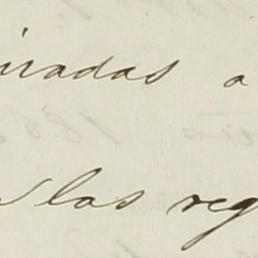 iradas a
las reg